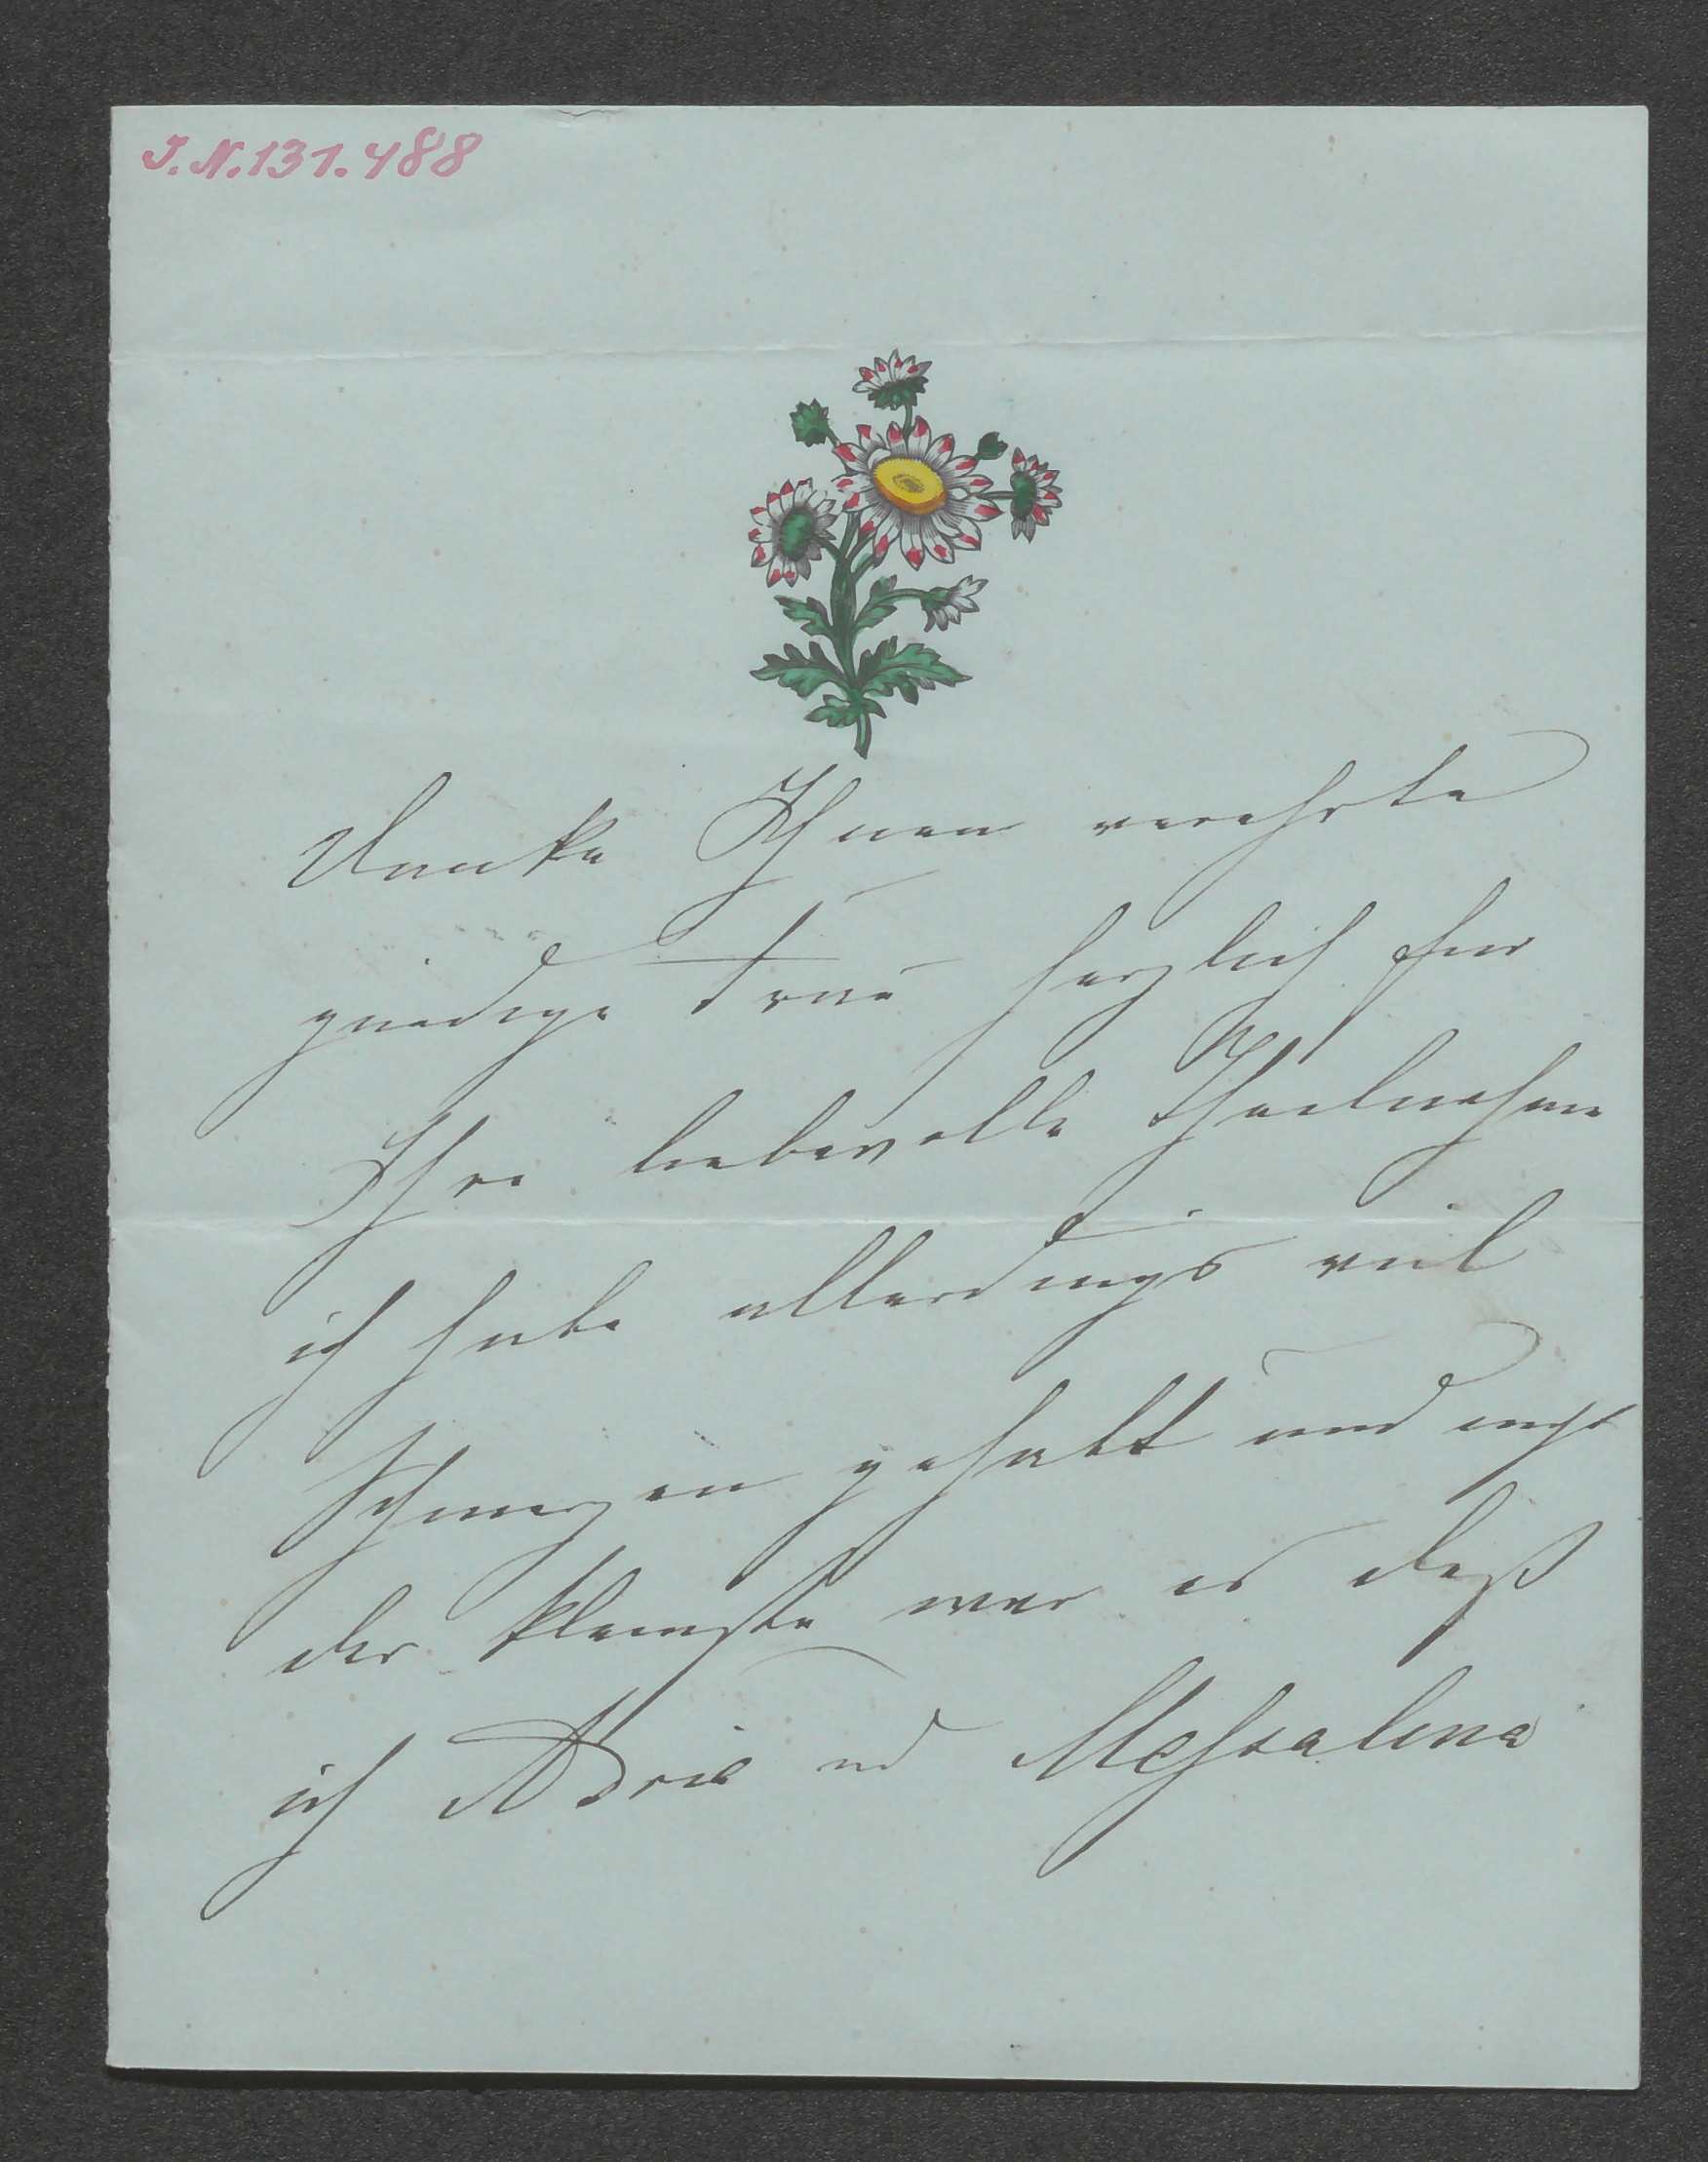 J.N. 131.488
Danke Ihnen verehrte
gnädige Frau herzlich für
Ihre liebevolle Theilnahme
ich habe allerdings viel
Schmerzen gehabt und nicht
der kleinste war es daß
ich Adria und Messalina